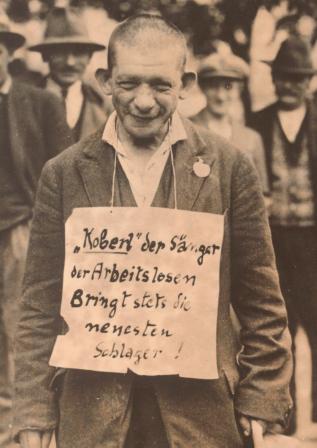 „Kobert" der Sänger
der Arbeitslosen
Bringt stets die
neuesten
Schlager !